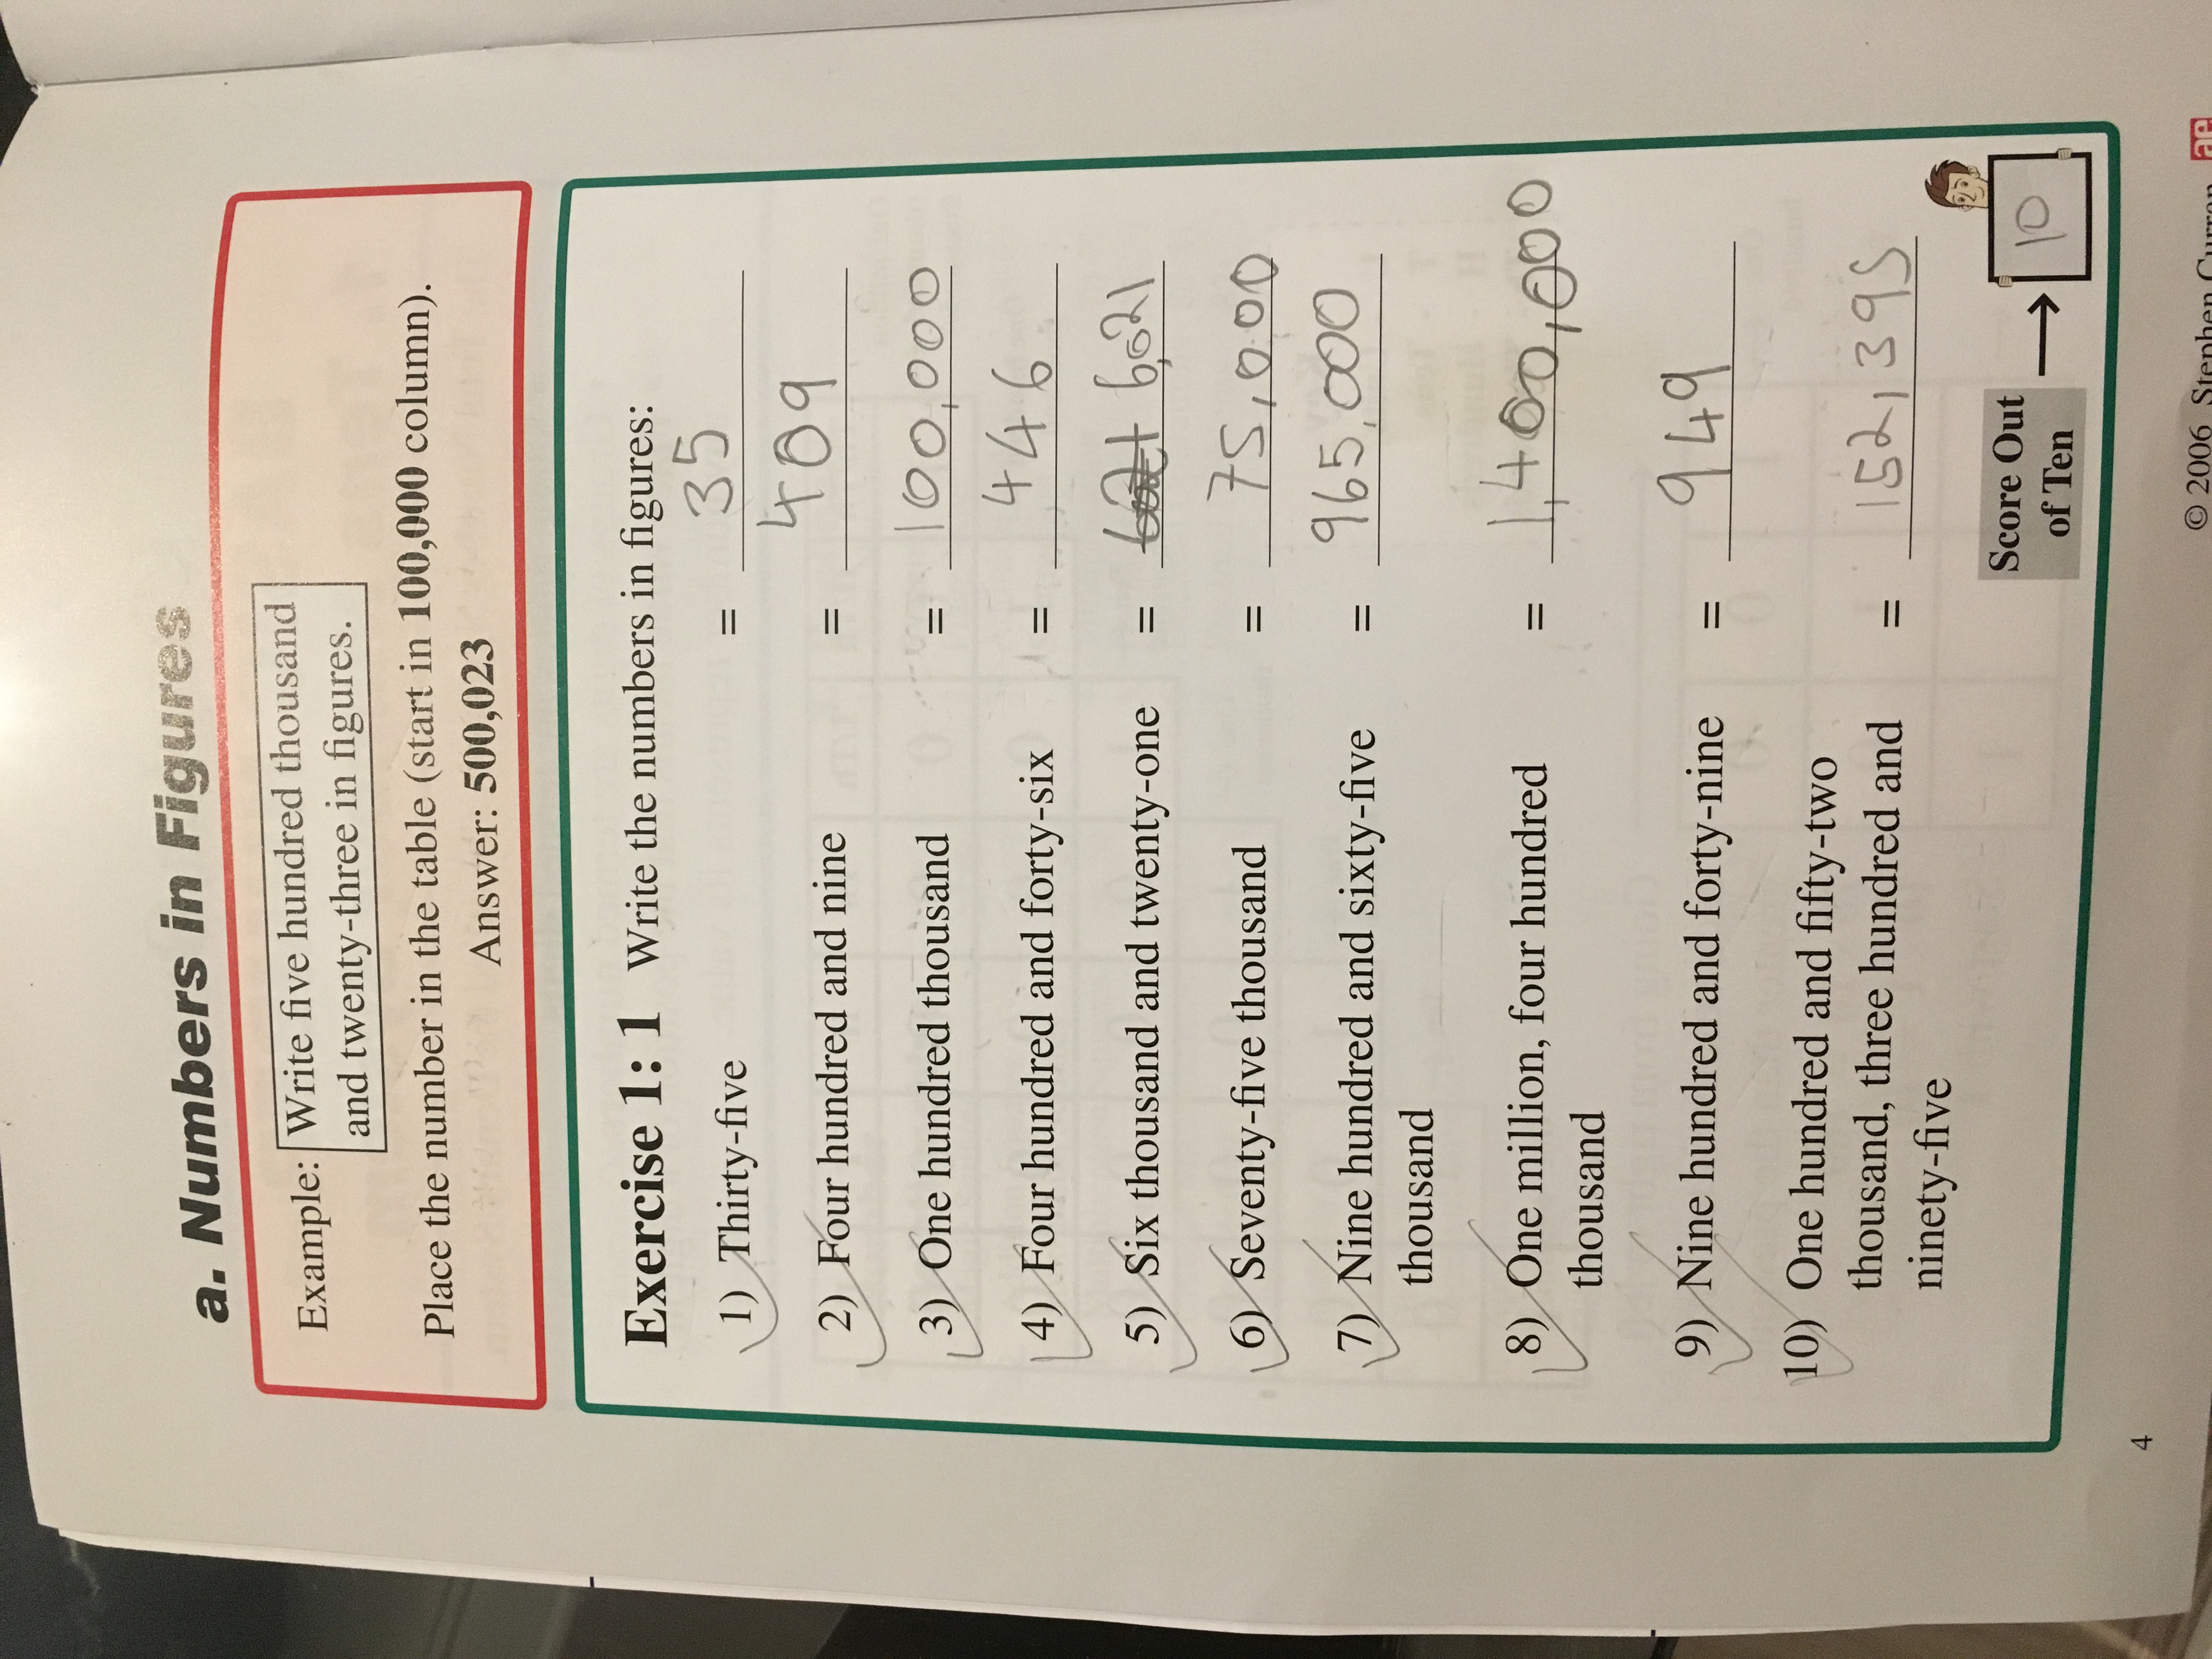 a. Numbers in Figures
Example: Write five hundred thousand
and twenty-three in figures.
Place the number in the table (start in 100,000 column).
Answer: 500,023
Exercise 1: 1 Write the numbers in figures:
1) Thirty-five = 35
2) Four hundred and nine = 409
3) One hundred thousand = 100,000
4) Four hundred and forty-six = 446
5) Six thousand and twenty-one = 6,021
6) Seventy-five thousand = 75,000
7) Nine hundred and sixty-five = 965,000
thousand
8) One million, four hundred = 1,400,000
thousand
9) Nine hundred and forty-nine = 949
10) One hundred and fifty-two
thousand, three hundred and = 152,395
ninety-five
Score Out
of Ten → 10
4
© 2006 Stephen Curran ae